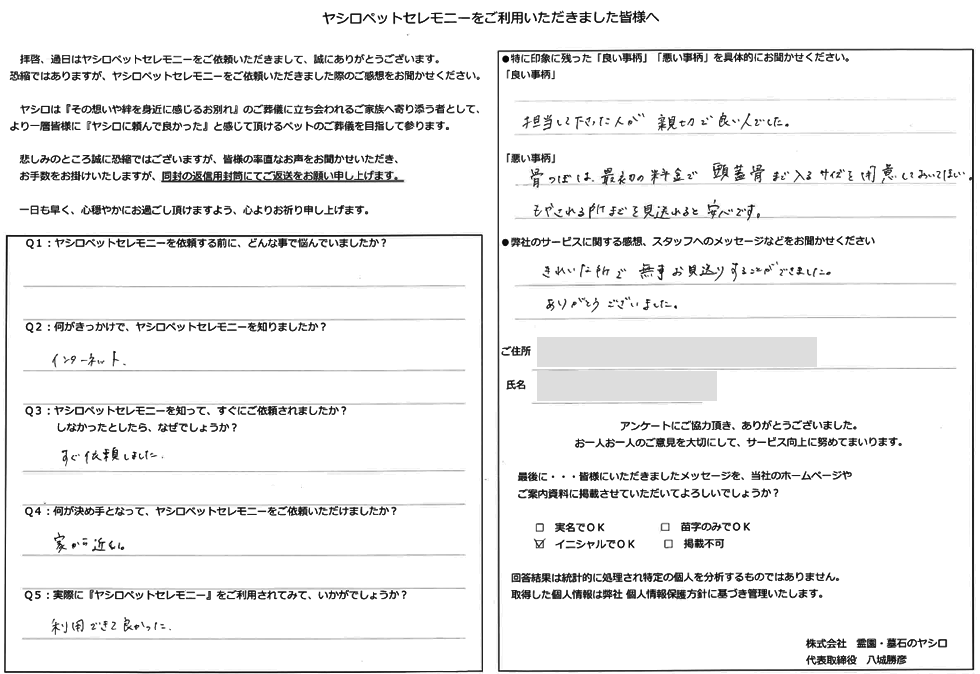 ヤシロペットセレモニーをご利用いただきました皆様へ
拝啓、過日はヤシロペットセレモニーをご依頼いただきまして、誠にありがとうございます。
恐縮ではありますが、ヤシロペットセレモニーをご依頼いただきました際のご感想をお聞かせください。
ヤシロは『その想いや絆を身近に感じるお別れ』のご葬儀に立ち会われるご家族へ寄り添う者として、
より一層皆様に『ヤシロに頼んで良かった』と感じて頂けるペットのご葬儀を目指して参ります。
悲しみのところ誠に恐縮ではございますが、皆様の率直なお声をお聞かせいただき、
お手数をお掛けいたしますが、同封の返信用封筒にてご返送をお願い申し上げます。
一日も早く、心穏やかにお過ごし頂けますよう、心よりお祈り申し上げます。
Q1：ヤシロペットセレモニーを依頼する前に、どんな事で悩んでいましたか？
Q2：何がきっかけで、ヤシロペットセレモニーを知りましたか？
インターネット.
Q3：ヤシロペットセレモニーを知って、すぐにご依頼されましたか？
しなかったとしたら、なぜでしょうか？
すぐ依頼しました.
Q4：何が決め手となって、ヤシロペットセレモニーをご依頼いただけましたか？
家から近い。
Q5：実際に『ヤシロペットセレモニー』をご利用されてみて、いかがでしょうか？
利用できて良かった.
●特に印象に残った「良い事柄」「悪い事柄」を具体的にお聞かせください。
「良い事柄」
担当して下さった人が 親切で良い人でした。
「悪い事柄」
骨つぼは、最初の料金で 頭蓋骨まで入るサイズを用意しておいてほしい。
もやされる所までを見送れると安心です。
●弊社のサービスに関する感想、スタッフへのメッセージなどをお聞かせください
きれいな所で 無事お見送りすることができました。
ありがとうございました。
ご住所
氏名
アンケートにご協力頂き、ありがとうございました。
お一人お一人のご意見を大切にして、サービス向上に努めてまいります。
最後に・・・皆様にいただきましたメッセージを、当社のホームページや
ご案内資料に掲載させていただいてよろしいでしょうか？
□ 実名でOK □ 苗字のみでOK
☑ イニシャルでOK □ 掲載不可
回答結果は統計的に処理され特定の個人を分析するものではありません。
取得した個人情報は弊社 個人情報保護方針に基づき管理いたします。
株式会社 霊園・墓石のヤシロ
代表取締役 八城勝彦